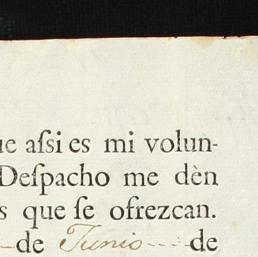 ue aſsi es mi volun-
Deſpacho me dèn
s que ſe ofrezcan.
de Junio de